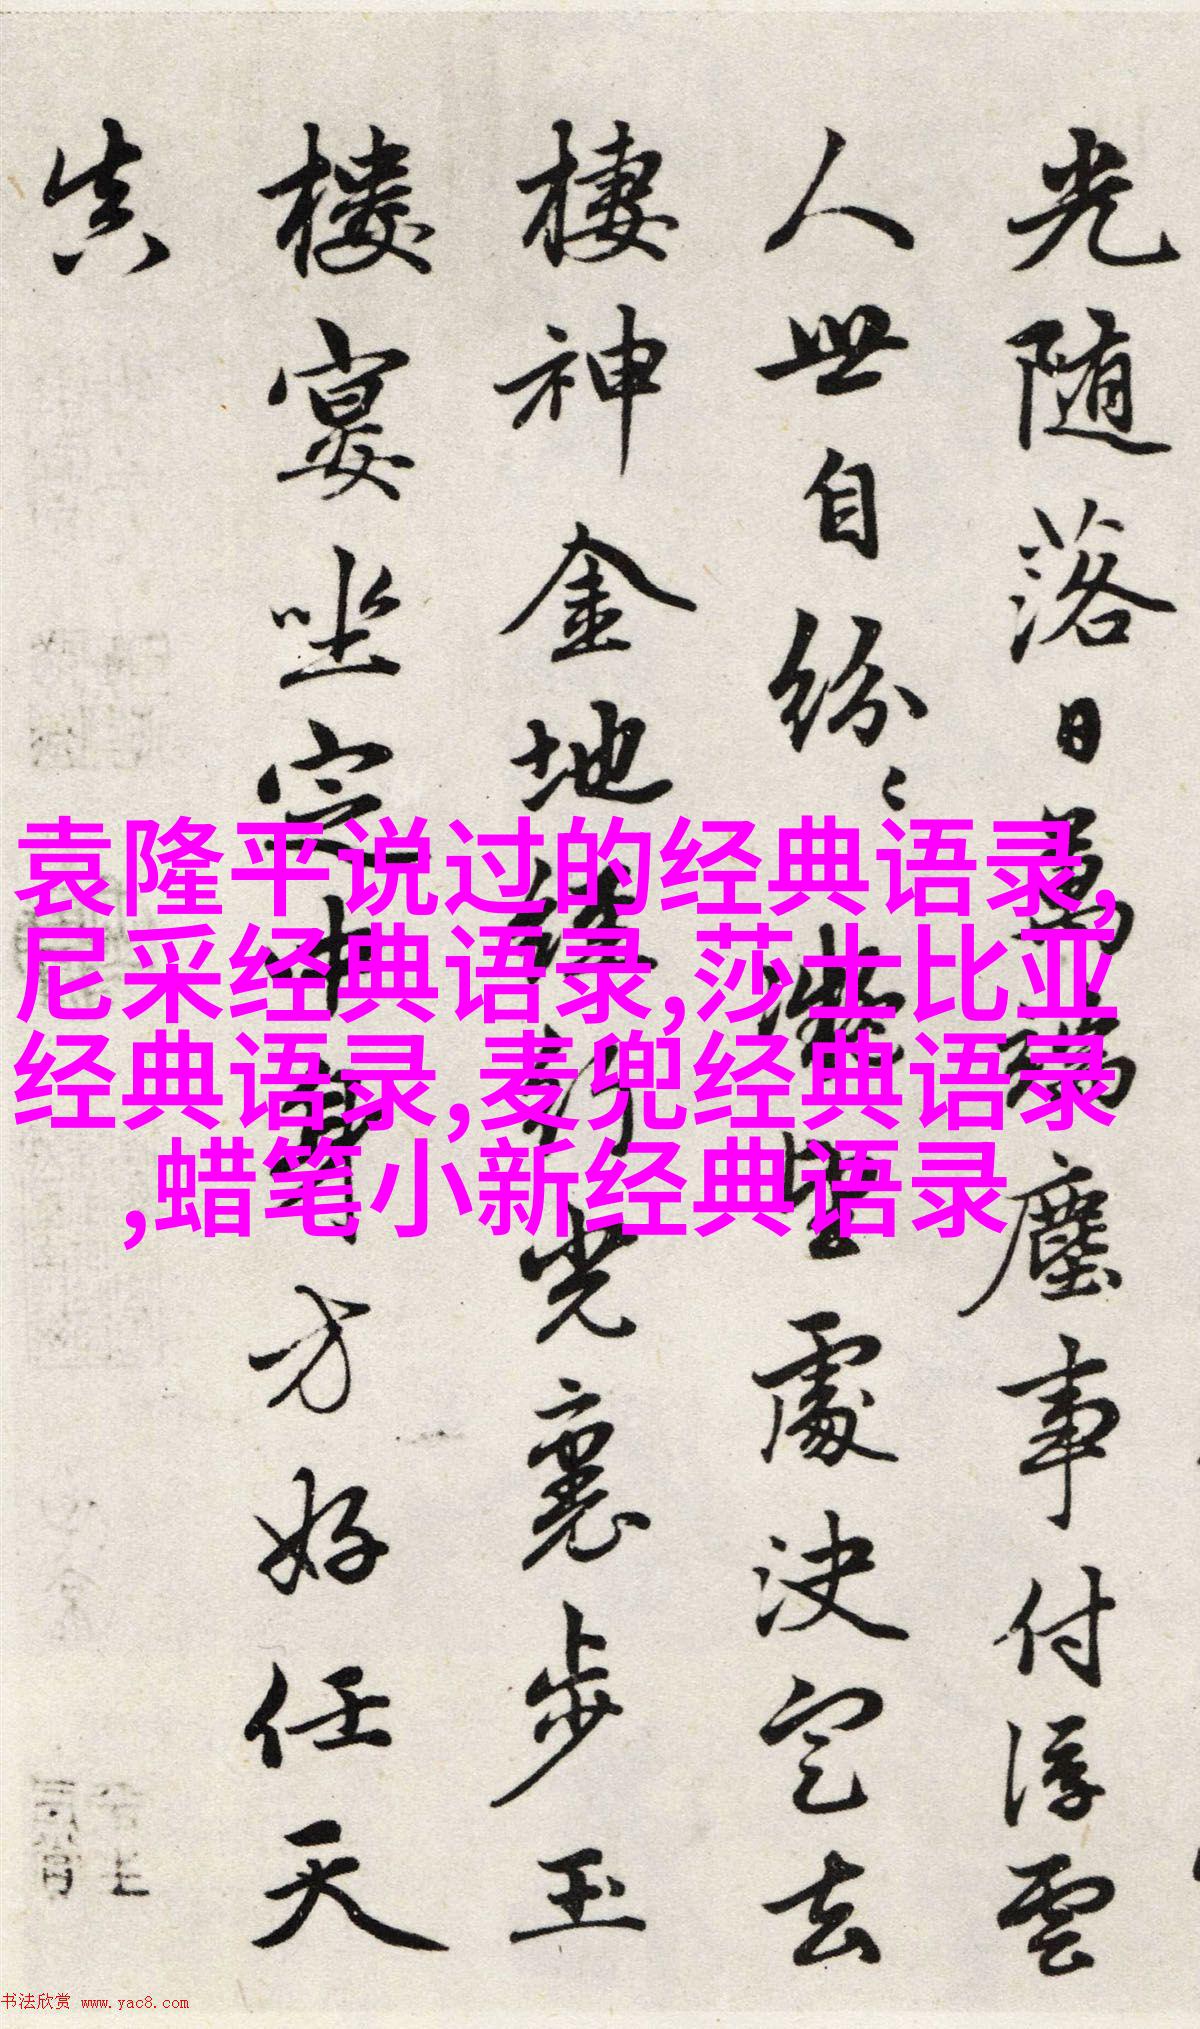 光随落日萬端塵事付浮雲
人世自紛〻處決定去
棲神金地光裏步玉
樓宴坐定中身方好任天
真
袁隆平说过的经典语录,
尼采经典语录,莎士比亚
经典语录,麦兜经典语录
,蜡笔小新经典语录
书法欣赏 www.yac8.com